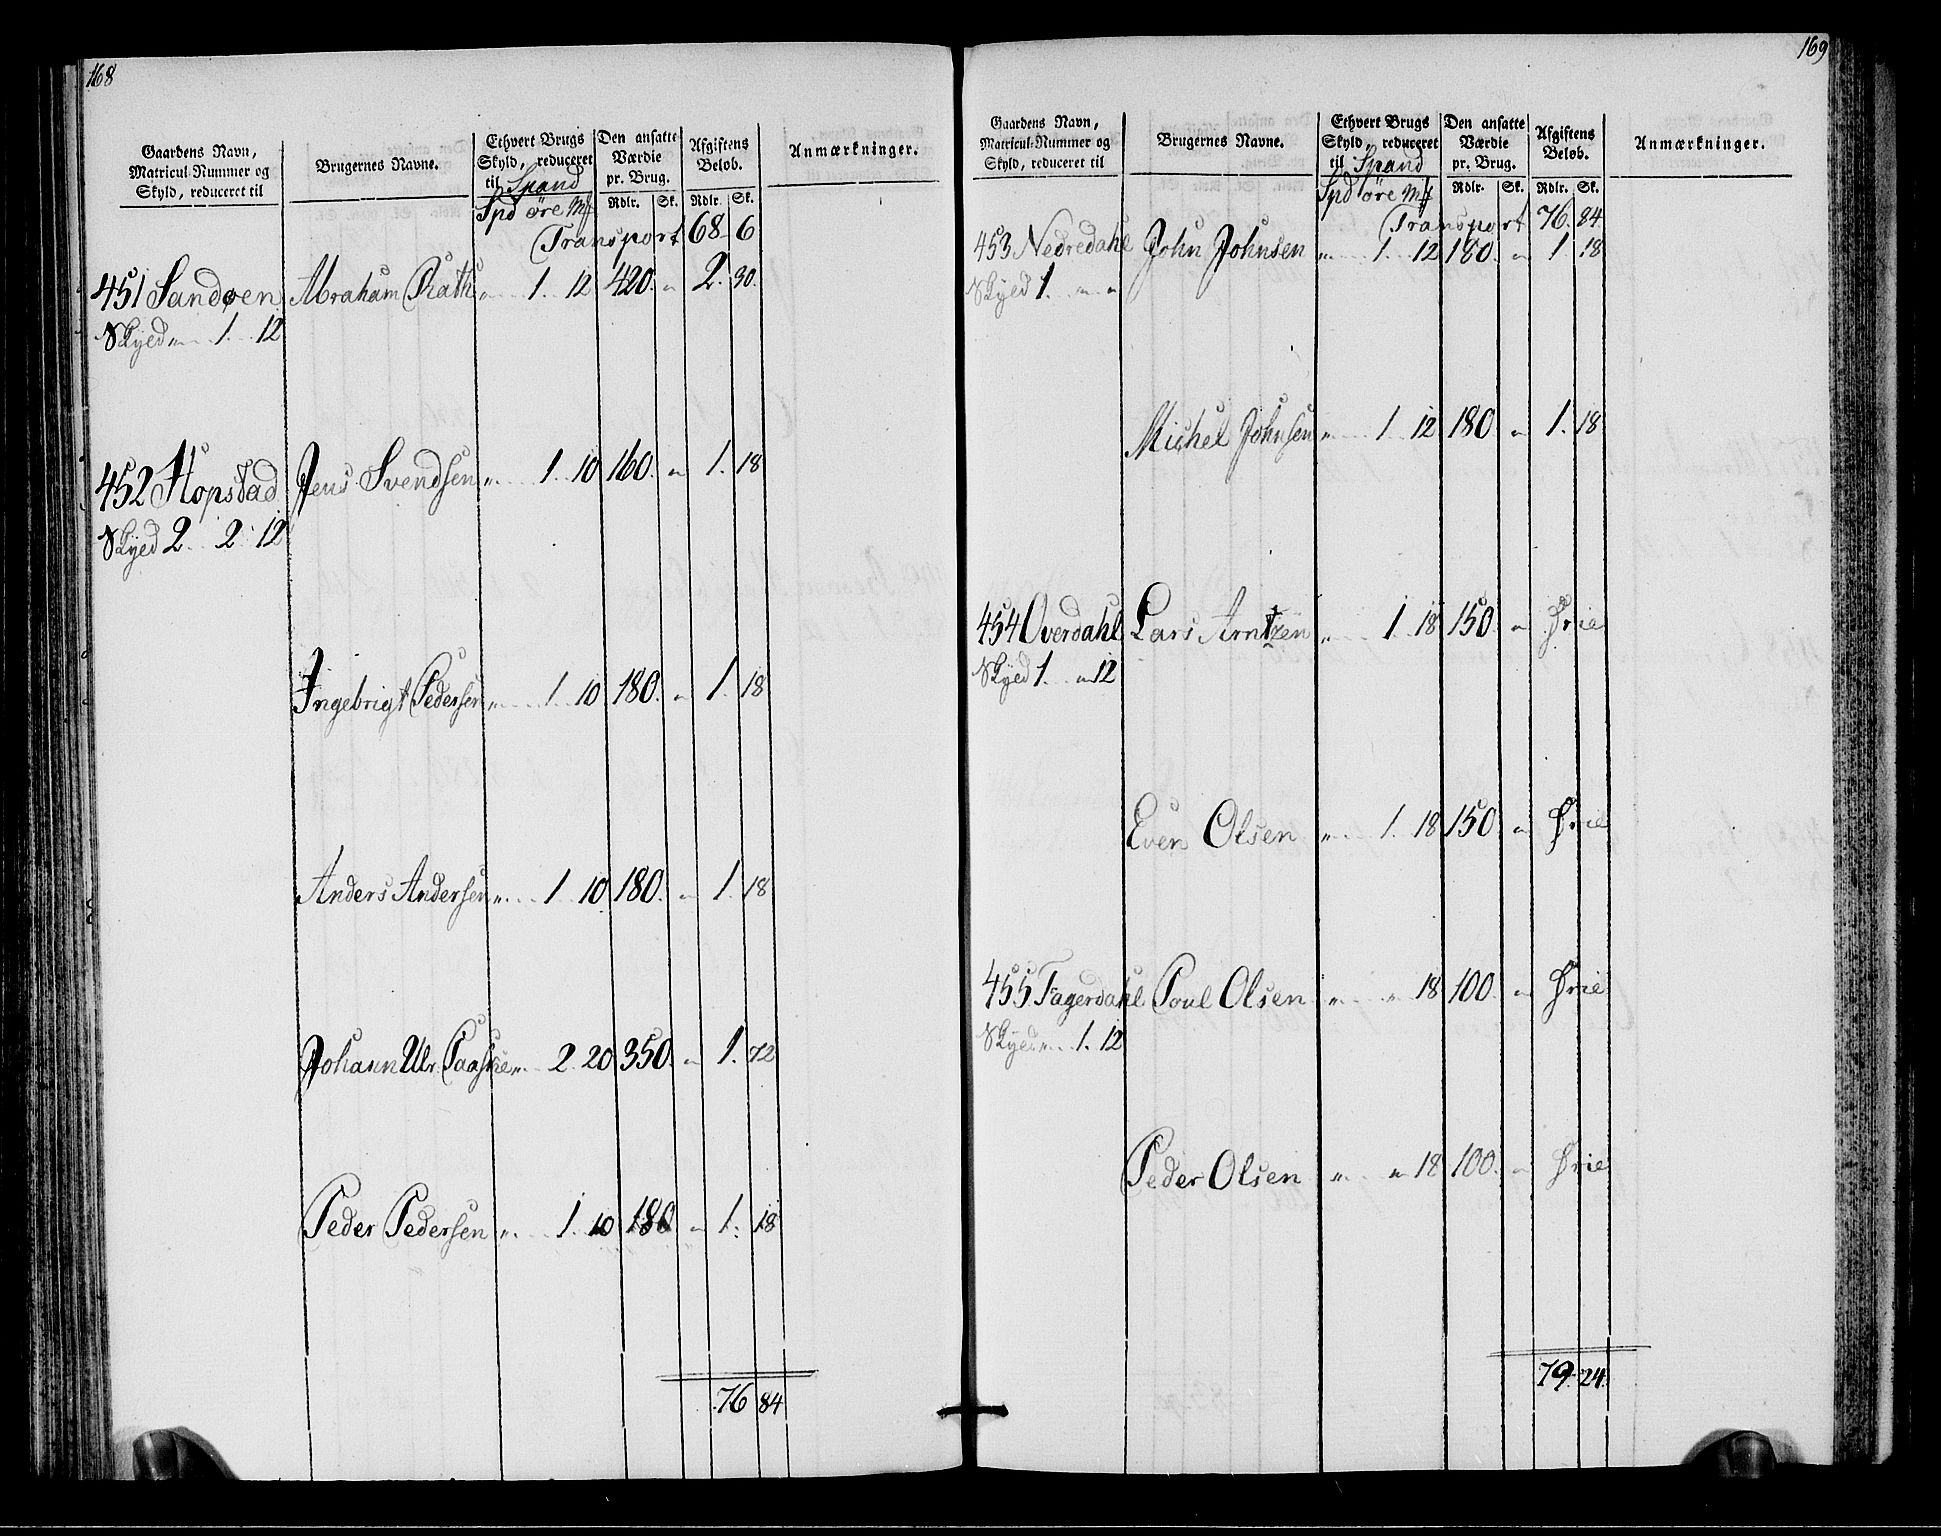 168
Gaardens Navn, Matricul-Nummer og Skyld, reduceret til
Brugernes Navne.
Ethvert Brugs Skyld, reduceret til Spand
Den ansatte Værdie pr. Brug.
Afgiftens Beløb.
Anmærkninger.
Spd øre Mk
Rdlr. Sk. Rdlr. Sk.
Transport 68 6
451 Sandøen Abraham Rath „ 1. 12 420. „ 2. 30.
Skyed „ 1. 12
452 Hopstad Jens Svendsen „ 1. 10 160. „ 1. 18
Skyed 2. 2. 12
Ingebrigt Pedersen „ 1. 10 180. „ 1. 18
Anders Andersen „ 1. 10 180. „ 1. 18
Johann Ulr. Paaske „ 2. 20 350. „ 1. 72
Peder Pedersen „ 1. 10 180 „ 1. 18
76 84
169
Gaardens Navn, Matricul-Nummer og Skyld, reduceret til
Brugernes Navne.
Ethvert Brugs Skyld, reduceret til Spand
Den ansatte Værdie pr. Brug.
Afgiftens Beløb.
Anmærkninger.
Spd øre Mk
Rdlr. Sk. Rdlr. Sk.
Transport 76. 84.
453 Nedredahl John Johnsen „ 1. 12 180. „ 1. 18
Skyed 1. „ „
Michel Johnsen „ 1. 12 180 „ 1. 18
454 Overdahl Lars Arntzen „ 1. 18 150. „ Frie
Skyed 1. „ 12
Even Olsen „ 1. 18 150. „ Frie
455 Fagerdahl Poul Olsen „ „ 18 100. „ Frie
Skyed „ 1. 12
Peder Olsen „ „ 18 100. „ Frie
79. 24.